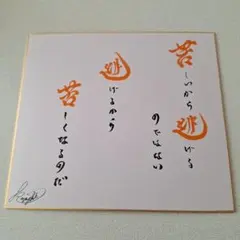 苦しいから逃げる
のではない
逃げるから
苦しくなるのだ